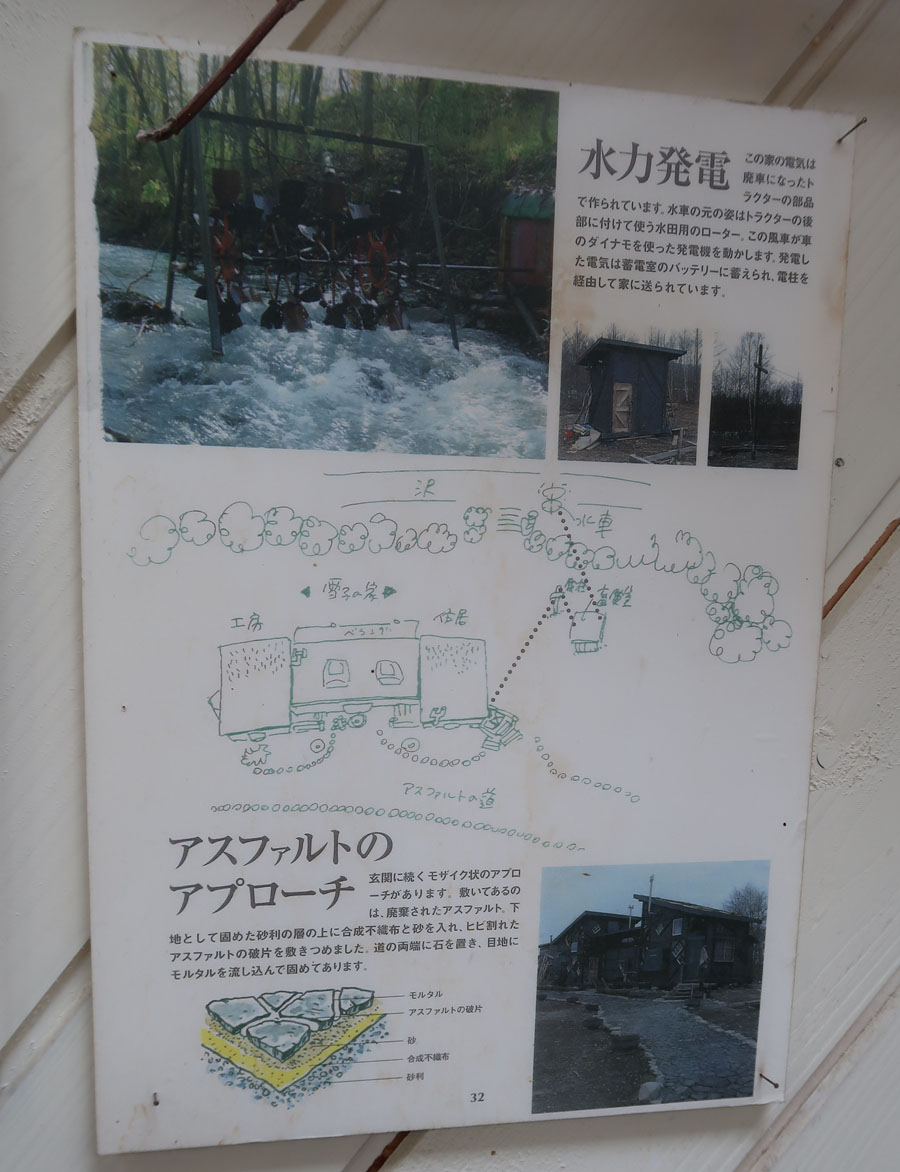 水力発電
この家の電気は
廃車になったト
ラクターの部品
で作られています。水車の元の姿はトラクターの後
部に付けて使う水田用のローター。この風車が車
のダイナモを使った発電機を動かします。発電し
た電気は蓄電室のバッテリーに蓄えられ、電柱を
経由して家に送られています。
沢
水車
電柱
蓄電室
雪子の家
工房
べらんだ
住居
アスファルトの道
アスファルトの
アプローチ
玄関に続くモザイク状のアプロ
ーチがあります。敷いてあるの
は、廃棄されたアスファルト。下
地として固めた砂利の層の上に合成不織布と砂を入れ、ヒビ割れた
アスファルトの破片を敷きつめました。道の両端に石を置き、目地に
モルタルを流し込んで固めてあります。
モルタル
アスファルトの破片
砂
合成不織布
砂利
32